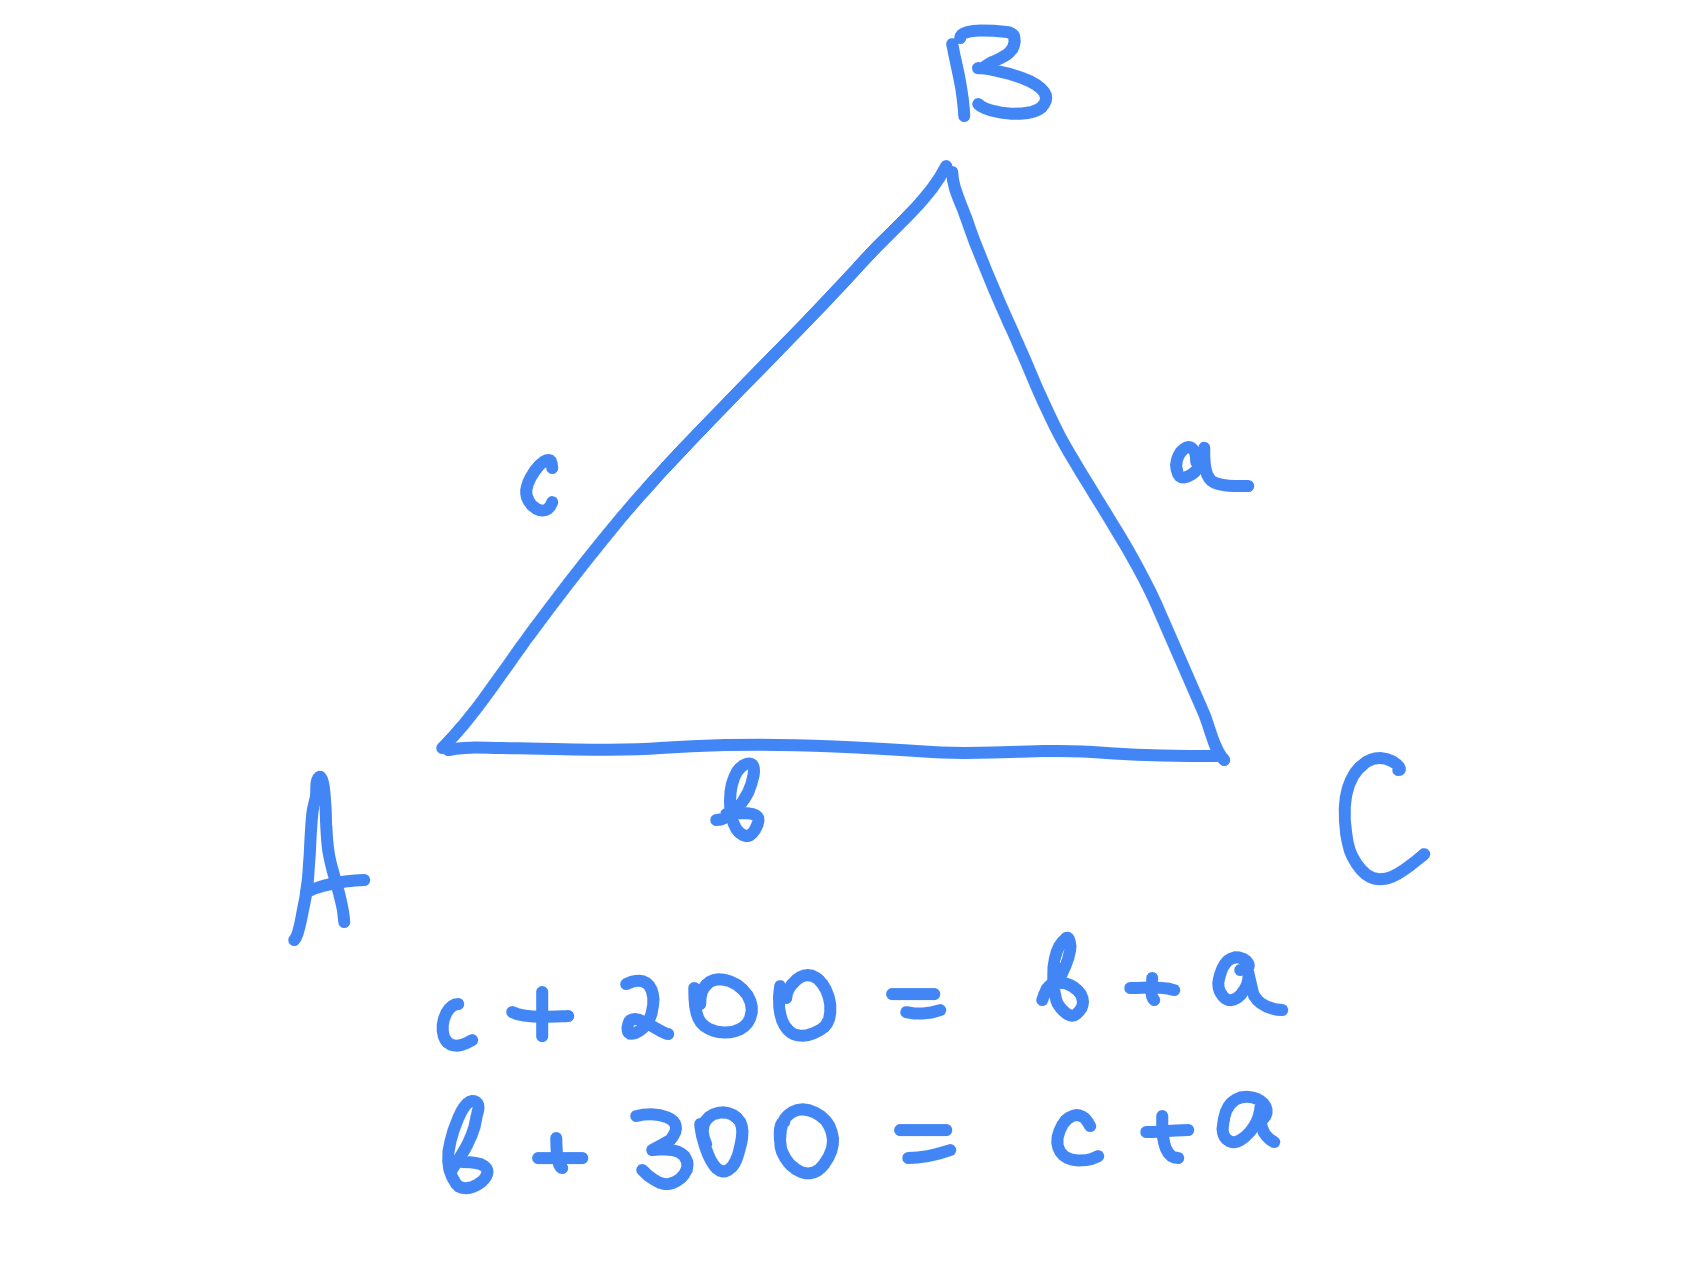 B
c
a
b
A
C
c + 200 = b + a
b + 300 = c + a